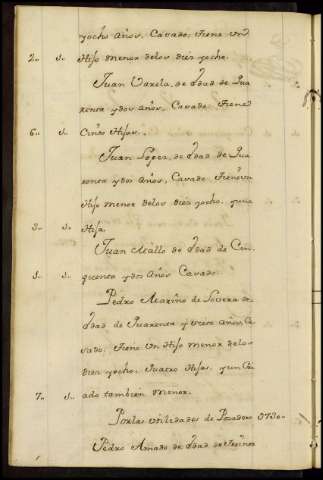 yocho años, Casado, tiene un
2.. S.. Hijo menor de los diez yocho.
Juan Varela, de hedad de Qua
renta ydos años, Casado tiene
6.. S.. Cinco Hijos.
Juan Lopez, de hedad de Qua
renta ydos años, Casado tiene un
Hijo menor de los diez yocho, y una
3.. S.. Hija.
Juan de hedad de Cin,
S.. quenta ydos años Casado.
Pedro Mariño de Lovera de
hedad de Quarenta y años, Ca
sado, tiene un Hijo menor de los
diez yocho, Quatro Hijas, y un Cri
7.. S.. ado tambien menor.
Por las utilidades de Pescador 0730..
Pedro Amado de hedad de treinta